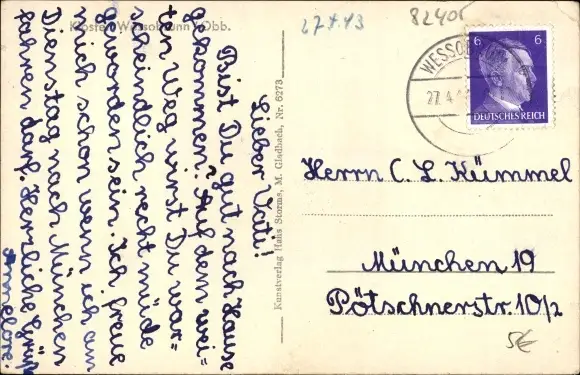 Kloster Wessobrunn / Obb.
27.4.43
82401
Lieber Vati!
Bist Du gut nach Hause
gekommen? Auf dem wei=
ten Weg wirst Du war=
scheindlich recht müde
geworden sein. Ich freue
mich schon wenn ich am
Dienstag nach München
fahren darf. Herzliche Grüße
Annelore.
Kunstverlag Hans Storms, M. Gladbach, Nr. 6273
WESSO
27.4.
6 6
DEUTSCHES REICH
Herrn C. L. Kümmel
München 19
Pötschnerstr. 10/2
5€